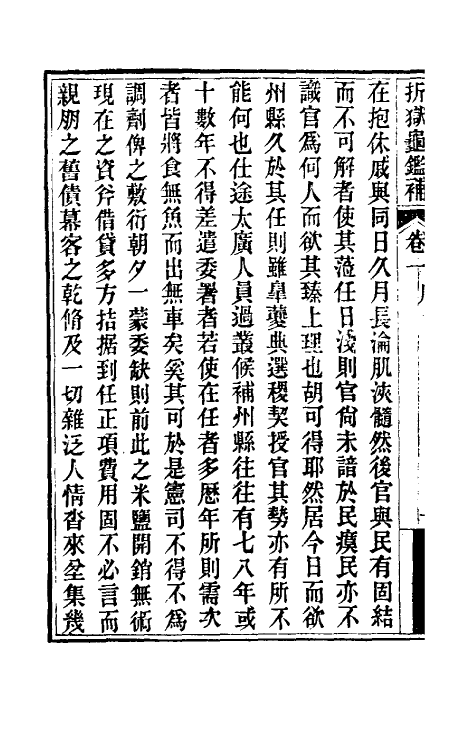 折獄龜鑑補
卷一
在抱休戚與同日久月長淪肌浹髓然後官與民有固結
而不可解者使其蒞任日淺則官尙未諳於民瘼民亦不
識官爲何人而欲其臻上理也胡可得耶然居今日而欲
州縣久於其任則雖臯夔典選稷契授官其勢亦有所不
能何也仕途太廣人員過叢候補州縣往往有七八年或
十數年不得差遣委署者若使在任者多歷年所則需次
者皆將食無魚而出無車矣奚其可於是憲司不得不爲
調劑俾之敷衍朝夕一蒙委缺則前此之米鹽開銷無術
現在之資斧借貸多方拮据到任正項費用固不必言而
親朋之舊債幕客之乾脩及一切雜泛人情沓來坌集幾